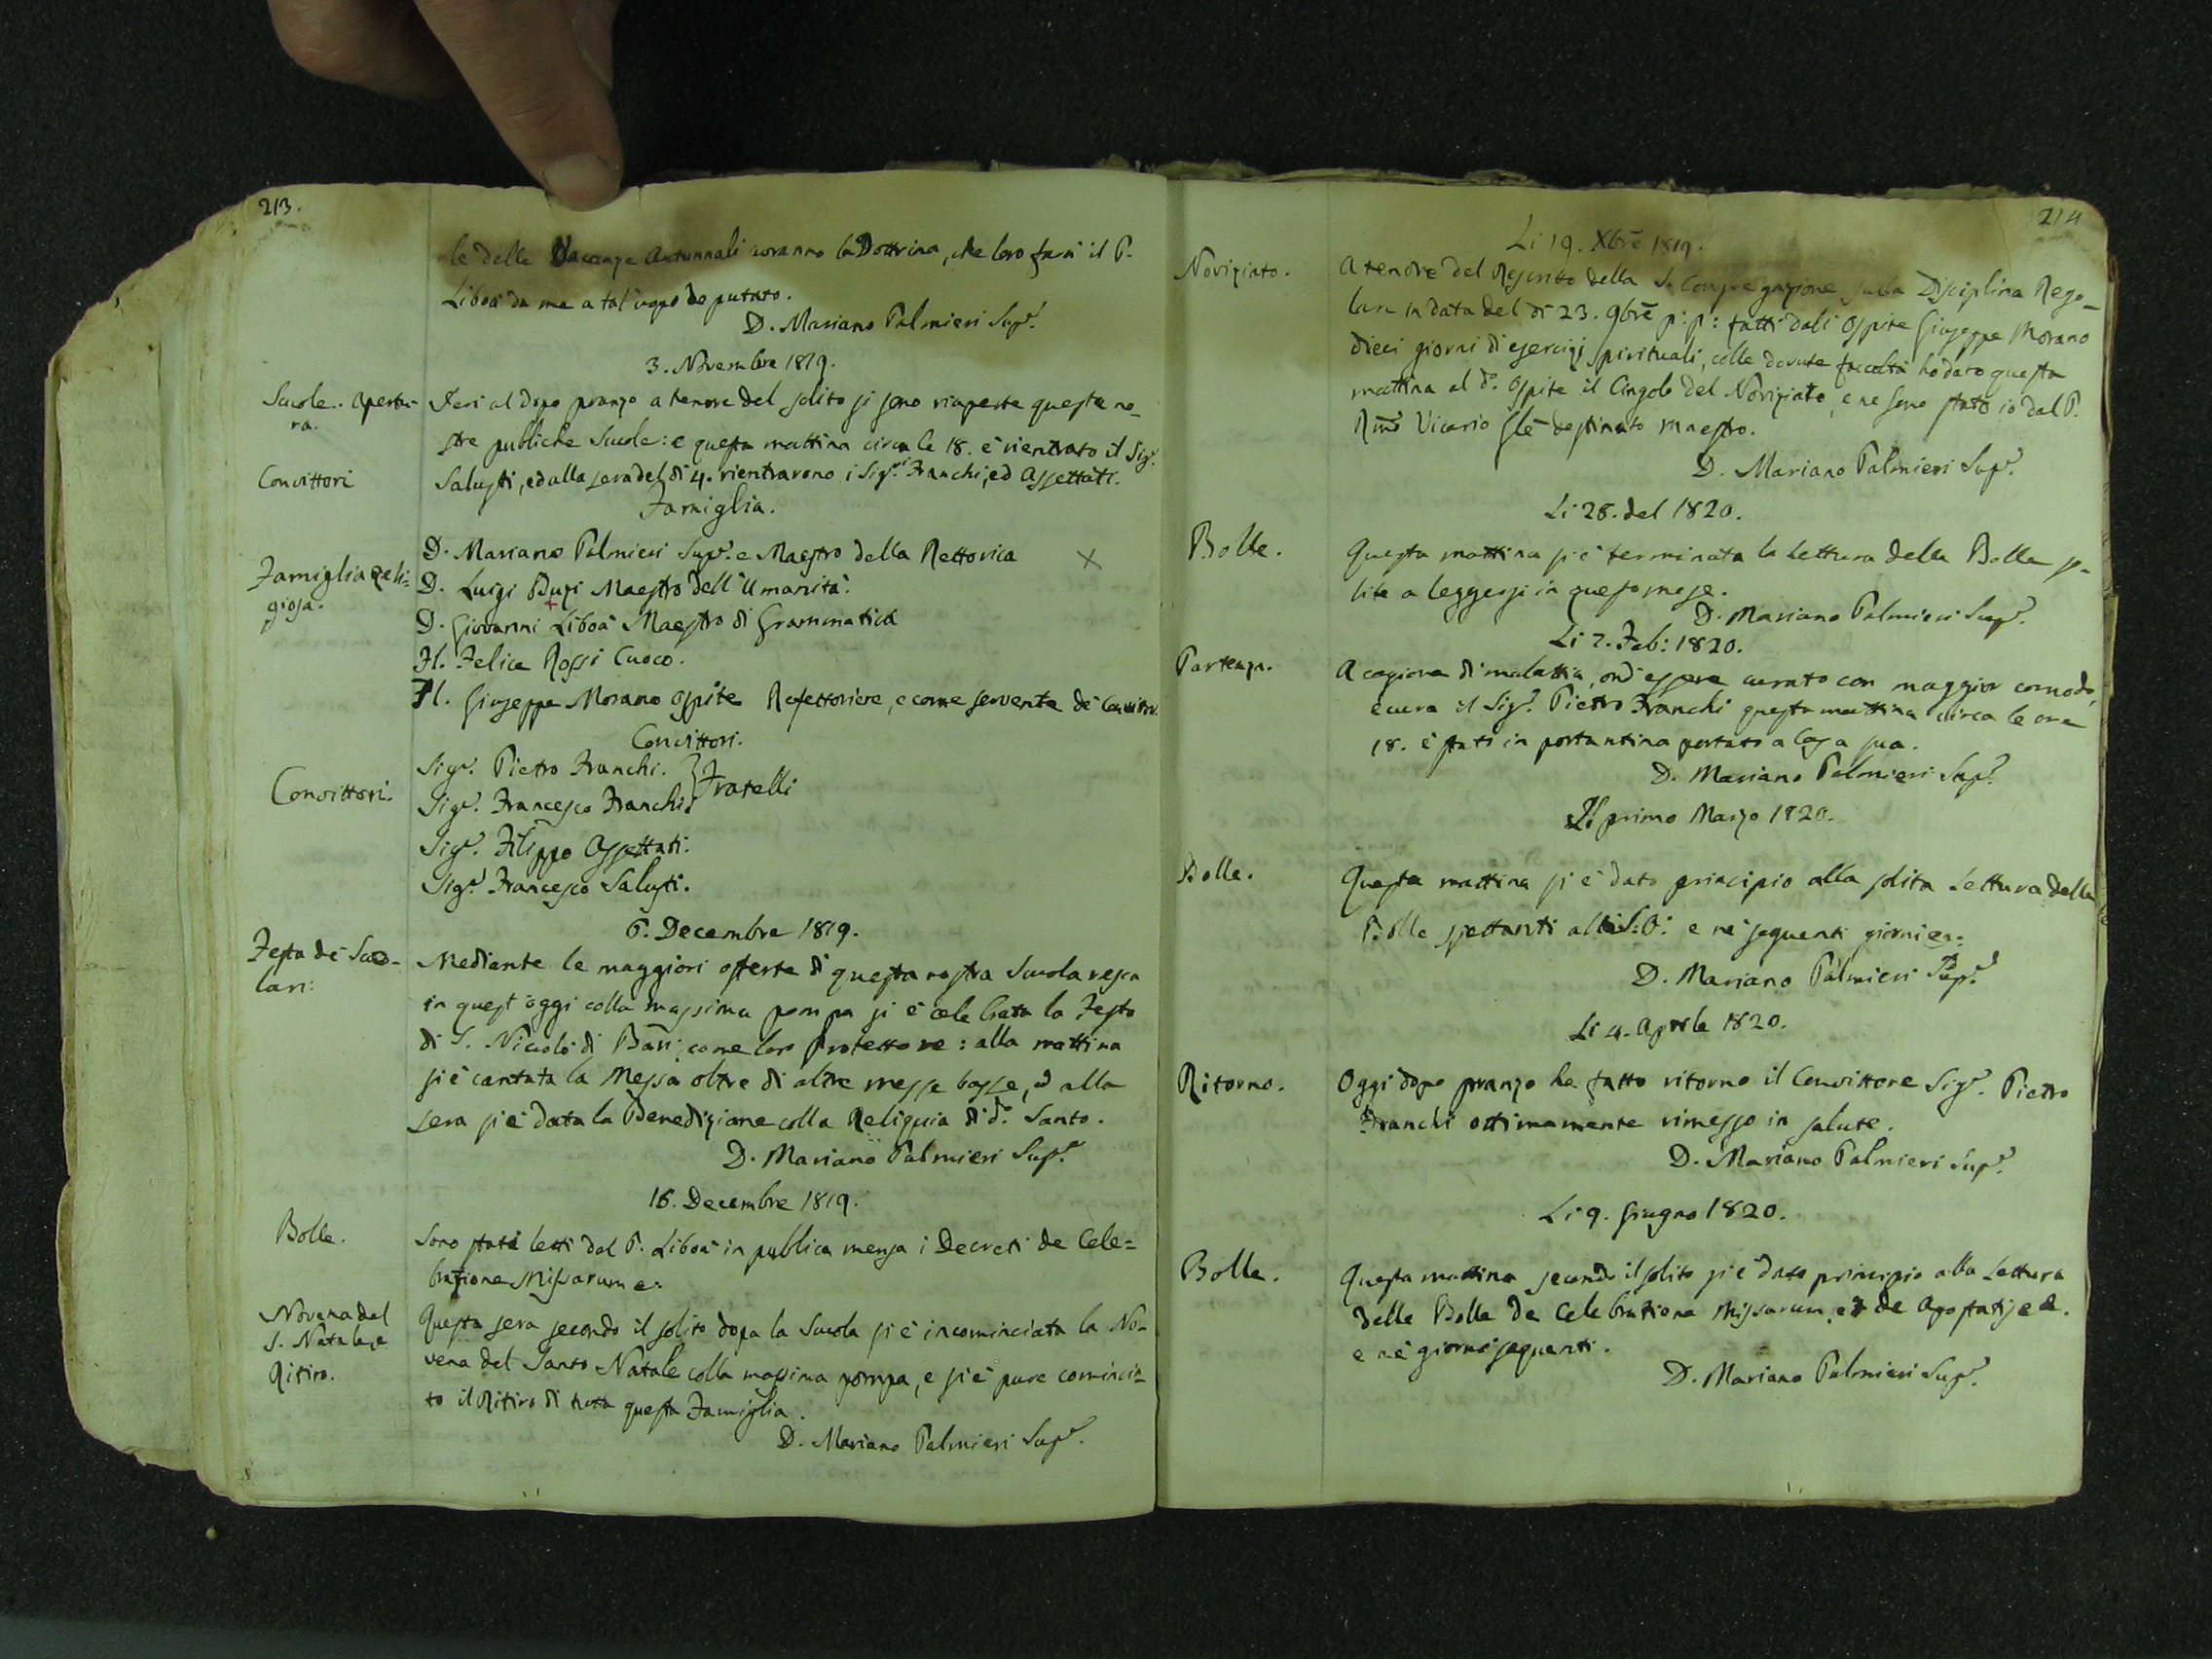 213.
le delle Vacanze Autunnali avranno la Dottrina, che loro farà il P.
Liboà da me a tal uopo deputato.
D. Mariano Palmieri Supe.
3. Novembre 1819.
Scuole. Apertu-
ra.
Ieri al dopo pranzo a tenore del solito si sono riaperte queste no-
stre publiche Scuole: e questa mattina circa le 18. è rientrato il Sigr.
Convittori
Salusti, ed alla sera del dì 4. rientrarono i Sigri. Franchi, ed Assettati.
Famiglia.
Famiglia Reli-
giosa.
D. Mariano Palmieri Supe. e Maestro della Rettorica
D. Luigi Buzi Maestro dell'Umanità.
D. Giovanni Liboà Maestro di Grammatica
Fl. Felice Rossi Cuoco.
Fl. Giuseppe Morano Ospite Refettoriere, e come servente de' Convittori.
Convittori.
Convittori.
Sigr. Pietro Franchi. } Fratelli
Sigr. Francesco Franchi.
Sigr. Filippo Assettati.
Sigr. Francesco Salusti.
6. Decembre 1819.
Festa de' Sco-
lari:
Mediante le maggiori offerte di questa nostra Scolaresca
in quest'oggi colla massima pompa si è celebrata la Festa
di S. Niccolò di Bari, come loro Protettore: alla mattina
si è cantata la Messa oltre di altre messe basse, ed alla
sera si è data la Benedizione colla Reliquia di do. Santo.
D. Mariano Palmieri Supe.
16. Decembre 1819.
Bolle.
Sono stati letti dal P. Liboà in publica mensa i Decreti de Cele=
bratione Missarum e:
Novena del
S. Natale, e
Ritiro.
Questa sera secondo il solito dopo la Scuola si è incominciata la No-
vena del Santo Natale colla massima pompa, e si è pure comincia=
to il Ritiro di tutta questa Famiglia.
D. Mariano Palmieri Supe.
214
Li 19. Xbre 1819.
Noviziato.
A tenore del Rescritto della S. Congregazione sulla Disciplina Rego-
lare in data del dì 23. 9bre p: p: fatti dall'Ospite Giuseppe Morano
dieci giorni di esercizj spirituali, colle dovute facoltà ho dato questa
mattina al do. Ospite il Cingolo del Noviziato, e ne sono stato io dal P.
Rmo Vicario Gle destinato Maestro.
D. Mariano Palmieri Supe.
Li 28. del 1820.
Bolle.
Questa mattina si è terminata la Lettura delle Bolle so-
lite a leggersi in questo mese.
D. Mariano Palmieri Supe.
Li 2. Feb: 1820.
Partenza.
A cagione di malattia, ond'essere curato con maggior comodo,
e cura il Sigr. Pietro Franchi questa mattina circa le ore
18. è stato in portantina portato a Casa sua.
D. Mariano Palmieri Supe.
Il primo Marzo 1820.
Bolle.
Questa mattina si è dato principio alla solita Lettura delle
Bolle spettanti al S: O: e ne' seguenti giorni
D. Mariano Palmieri Supe.
Li 4. Aprile 1820.
Ritorno.
Oggi dopo pranzo ha fatto ritorno il Convittore Sigr. Pietro
Franchi ottimamente rimesso in salute.
D. Mariano Palmieri Supe.
Li 9. Giugno 1820.
Bolle.
Questa mattina secondo il solito si è dato principio alla Lettura
delle Bolle de Celebratione Missarum, et de Apostatis
e ne' giorni seguenti.
D. Mariano Palmieri Supe.